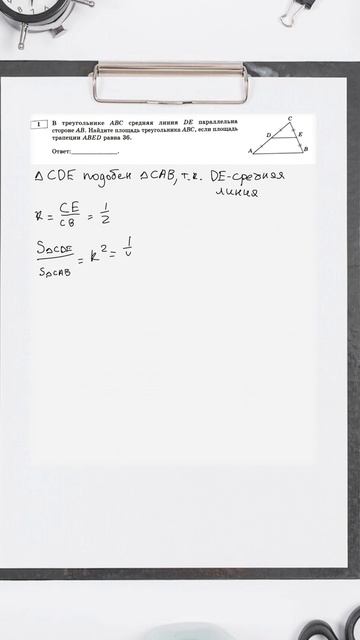 1 В треугольнике ABC средняя линия DE параллельна
стороне AB. Найдите площадь треугольника ABC, если площадь
трапеции ABED равна 36.
Ответ:
C
D E
A B
△CDE подобен △CAB, т.к. DE-средняя
линия
k = CE/CB = 1/2
S△CDE/S△CAB = k² = 1/